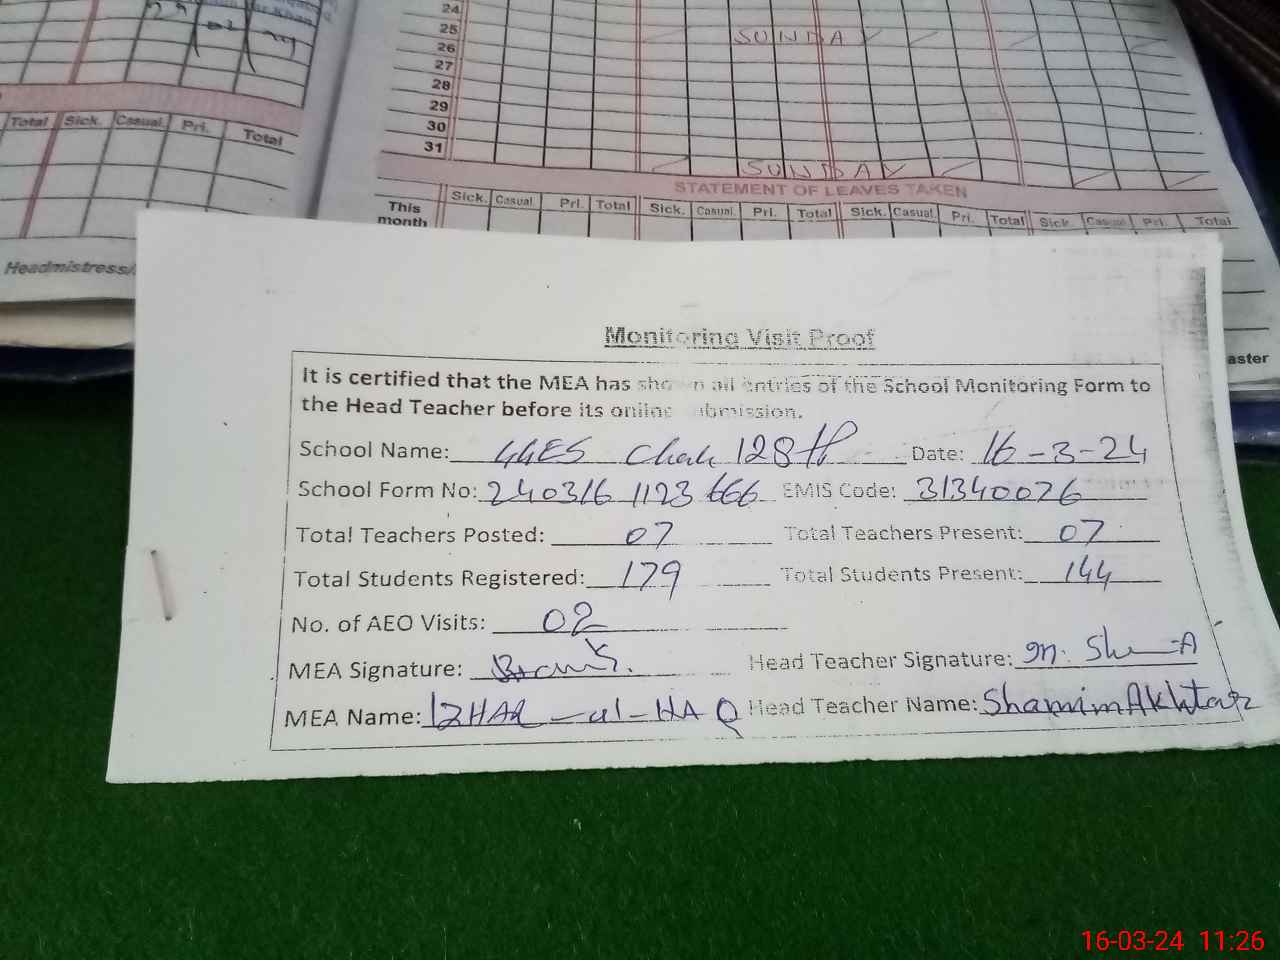 Khan
29
24
25
26
27
28
29
30
31
SUNDA
SUNDAY
Total Sick. Casual. Pri. Total
STATEMENT OF LEAVES TAKEN
This month
Sick. Casual. Pri. Total Sick. Casual. Pri. Total Sick. Casual. Pri. Total Sick. Casual. Pri. Total
Headmistress/
aster
Monitoring Visit Proof
It is certified that the MEA has shown all entries of the School Monitoring Form to
the Head Teacher before its online submission.
School Name: GGES Chak 128 Date: 16-3-24
School Form No: 240316 1123 666 EMIS Code: 31340026
Total Teachers Posted: 07 Total Teachers Present: 07
Total Students Registered: 179 Total Students Present: 144
No. of AEO Visits: 02
MEA Signature: Head Teacher Signature:
MEA Name: IZHAR-ul-HAQ Head Teacher Name: Shamim Akhtar
16-03-24 11:26